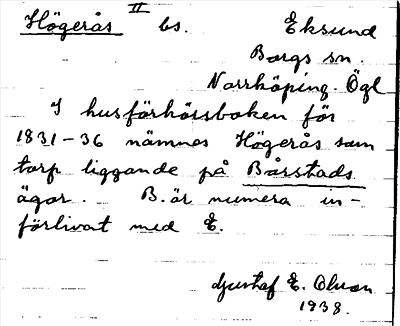 Högerås II bs. Eksund
Borgs sn.
Norrköping. Ögl
I husförhörsboken för
1831-36 nämnes Högerås som
torp liggande på Bårstads
ägor. B. är numera in-
förlivat med E.
Gustaf E. Olsson
1938.